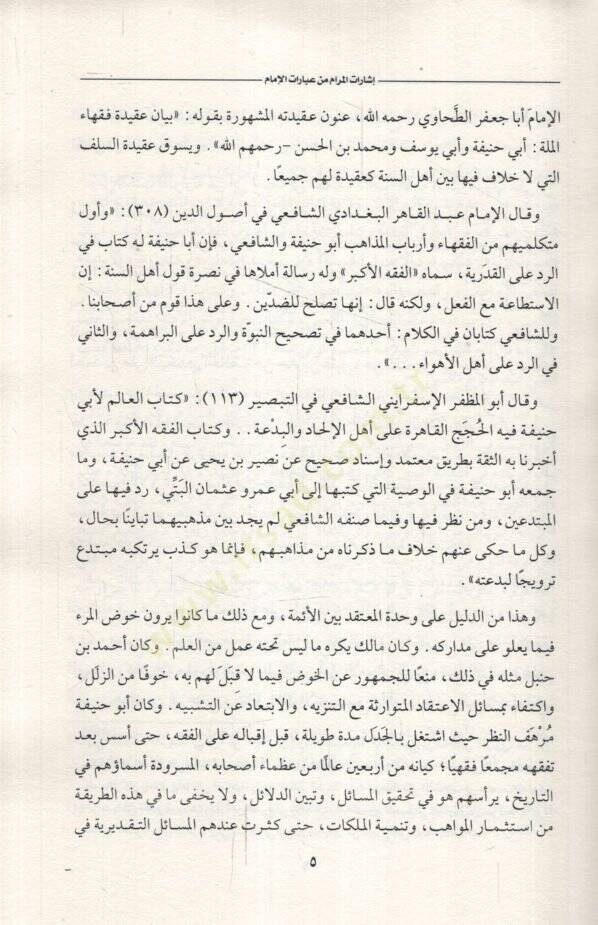 إشارات المرام من عبارات الإمام
الإمامَ أبا جعفر الطَّحاوي رحمه الله، عنون عقيدته المشهورة بقوله: «بيان عقيدة فقهاء
الملة: أبي حنيفة وأبي يوسف ومحمد بن الحسن –رحمهم الله». ويسوق عقيدة السلف
التي لا خلاف فيها بين أهل السنة كعقيدة لهم جميعًا.
وقال الإمام عبد القاهر البغدادي الشافعي في أصول الدين (٣٠٨): «وأول
متكلميهم من الفقهاء وأرباب المذاهب أبو حنيفة والشافعي، فإن أبا حنيفة له كتاب في
الرد على القدَرية، سماه «الفقه الأكبر» وله رسالة أملاها في نصرة قول أهل السنة: إن
الاستطاعة مع الفعل، ولكنه قال: إنها تصلح للضدّين. وعلى هذا قوم من أصحابنا.
وللشافعي كتابان في الكلام: أحدهما في تصحيح النبوّة والرد على البراهمة، والثاني
في الرد على أهل الأهواء...».
وقال أبو المظفر الإسفرايني الشافعي في التبصير (١١٣): «كتاب العالم لأبي
حنيفة فيه الحُجَج القاهرة على أهل الإلحاد والبِدْعة.. وكتاب الفقه الأكبر الذي
أخبرنا به الثقة بطريق معتمد وإسناد صحيح عن نصير بن يحيى عن أبي حنيفة، وما
جمعه أبو حنيفة في الوصية التي كتبها إلى أبي عمرو عثمان البَتِّي، رد فيها على
المبتدعين، ومن نظر فيها وفيما صنفه الشافعي لم يجد بين مذهبيهما تباينًا بحال،
وكل ما حكى عنهم خلاف ما ذكرناه من مذاهبهم، فإنما هو كذب يرتكبه مبتدع
ترويجًا لبدعته».
وهذا من الدليل على وحدة المعتقد بين الأئمة، ومع ذلك ما كانوا يرون خوض المرء
فيما يعلو على مداركه. وكان مالك يكره ما ليس تحته عمل من العلم. وكان أحمد بن
حنبل مثله في ذلك، منعًا للجمهور عن الخوض فيما لا قِبَلَ لهم به، خوفًا من الزلَل،
واكتفاء بمسائل الاعتقاد المتوارثة مع التنزيه، والابتعاد عن التشبيه. وكان أبو حنيفة
مُرْهَف النظر حيث اشتغل بالجَدَل مدة طويلة، قبل إقباله على الفقه، حتى أسس بعد
تفقهه مجمعًا فقهيًا؛ كيانه من أربعين عالمًا من عظماء أصحابه، المسرودة أسماؤهم في
التاريخ، يرأسهم هو في تحقيق المسائل، وتبين الدلائل، ولا يخفى ما في هذه الطريقة
من استثمار المواهب، وتنمية الملكات، حتى كثرت عندهم المسائل التقديرية في
٥